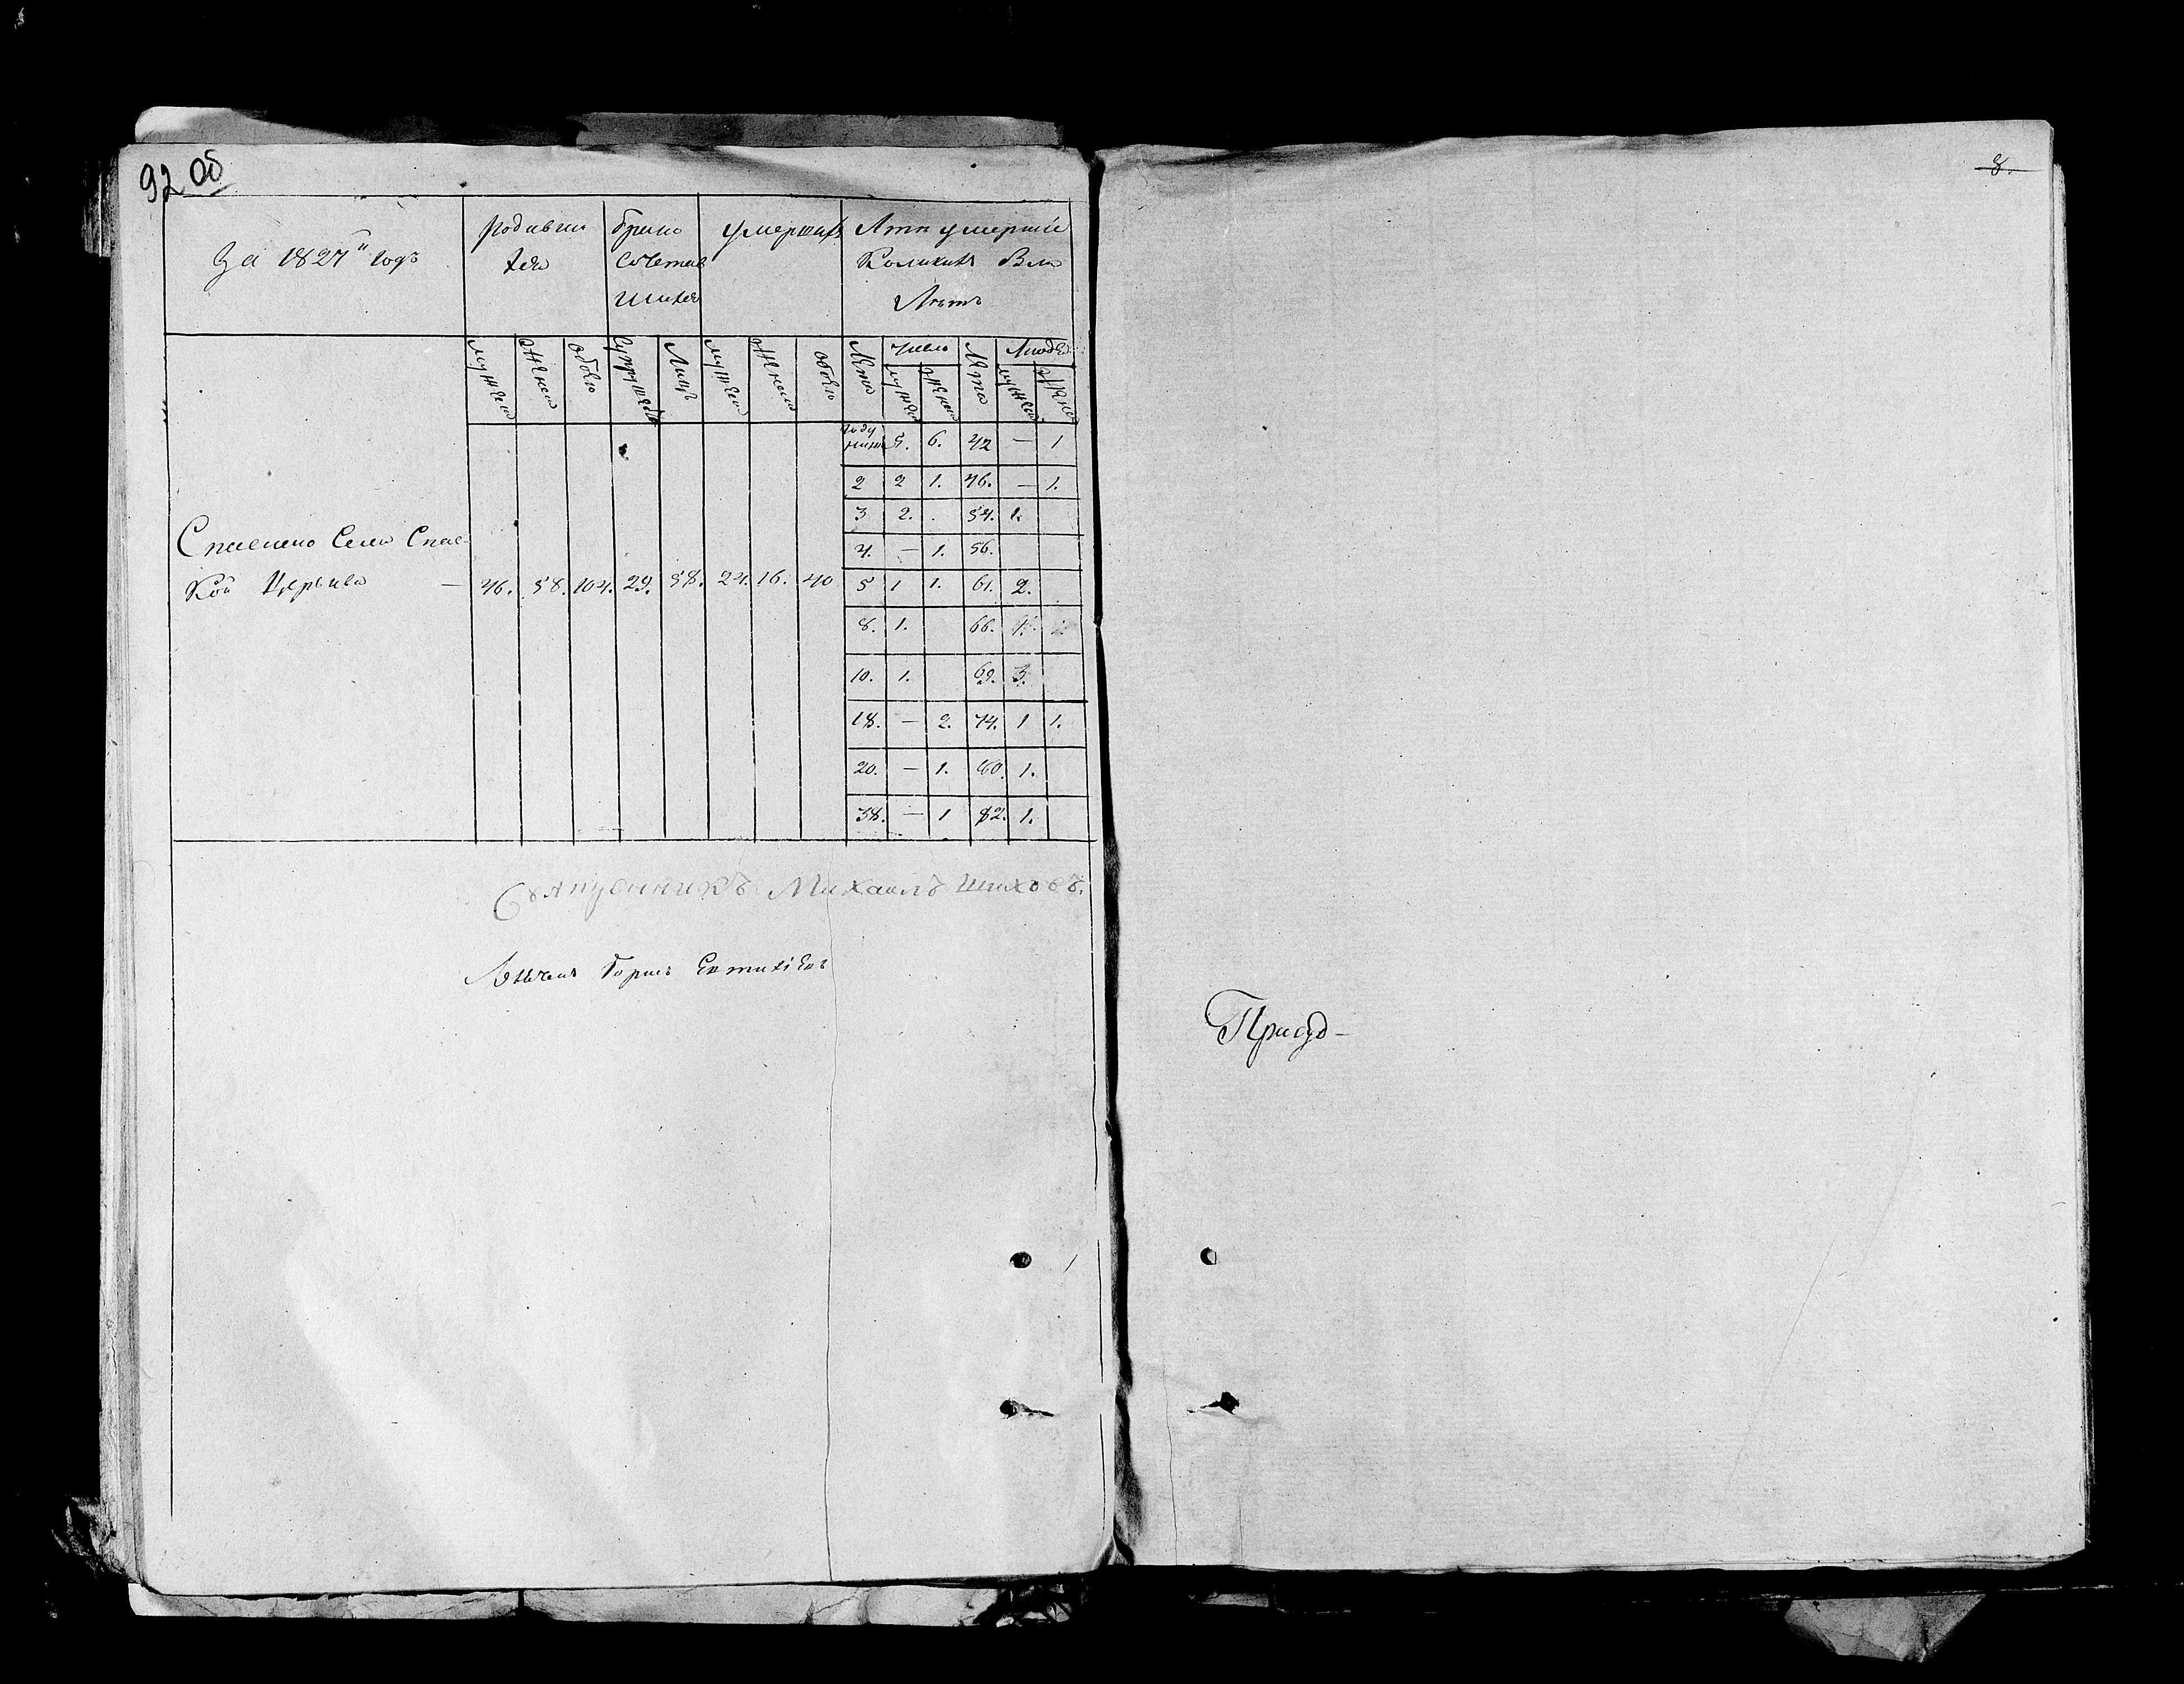 92 Об
За 1827й годъ
родивши
хся
брако
сочетав
шихся
умершихъ
Лѣта умершихъ
Коликихъ Кто
Лѣтъ
мужеска
Женска
обоего
Супружествъ
Лицъ
мужеска
Женска
обоего
Лѣта
Число
мужеска
Женска
Лѣта
Людей
мужеска
Женска
году ниже 5. 6. 42 — 1
2 2 1. 46. — 1.
3 2. . 54. 1.
4. — 1. 56.
Спаскаго Села Спас-
кой Церкви — 46. 58. 104. 29. 58. 24. 16. 40
5 1 1. 61. 2.
8. 1. 66. 1.
10. 1. 69. 3.
18. — 2. 74. 1 1.
20. — 1. 80. 1.
38. — 1 82. 1.
Священникъ Михаилъ Шиховъ.
Дьячекъ Борисъ
8.
Присуд-